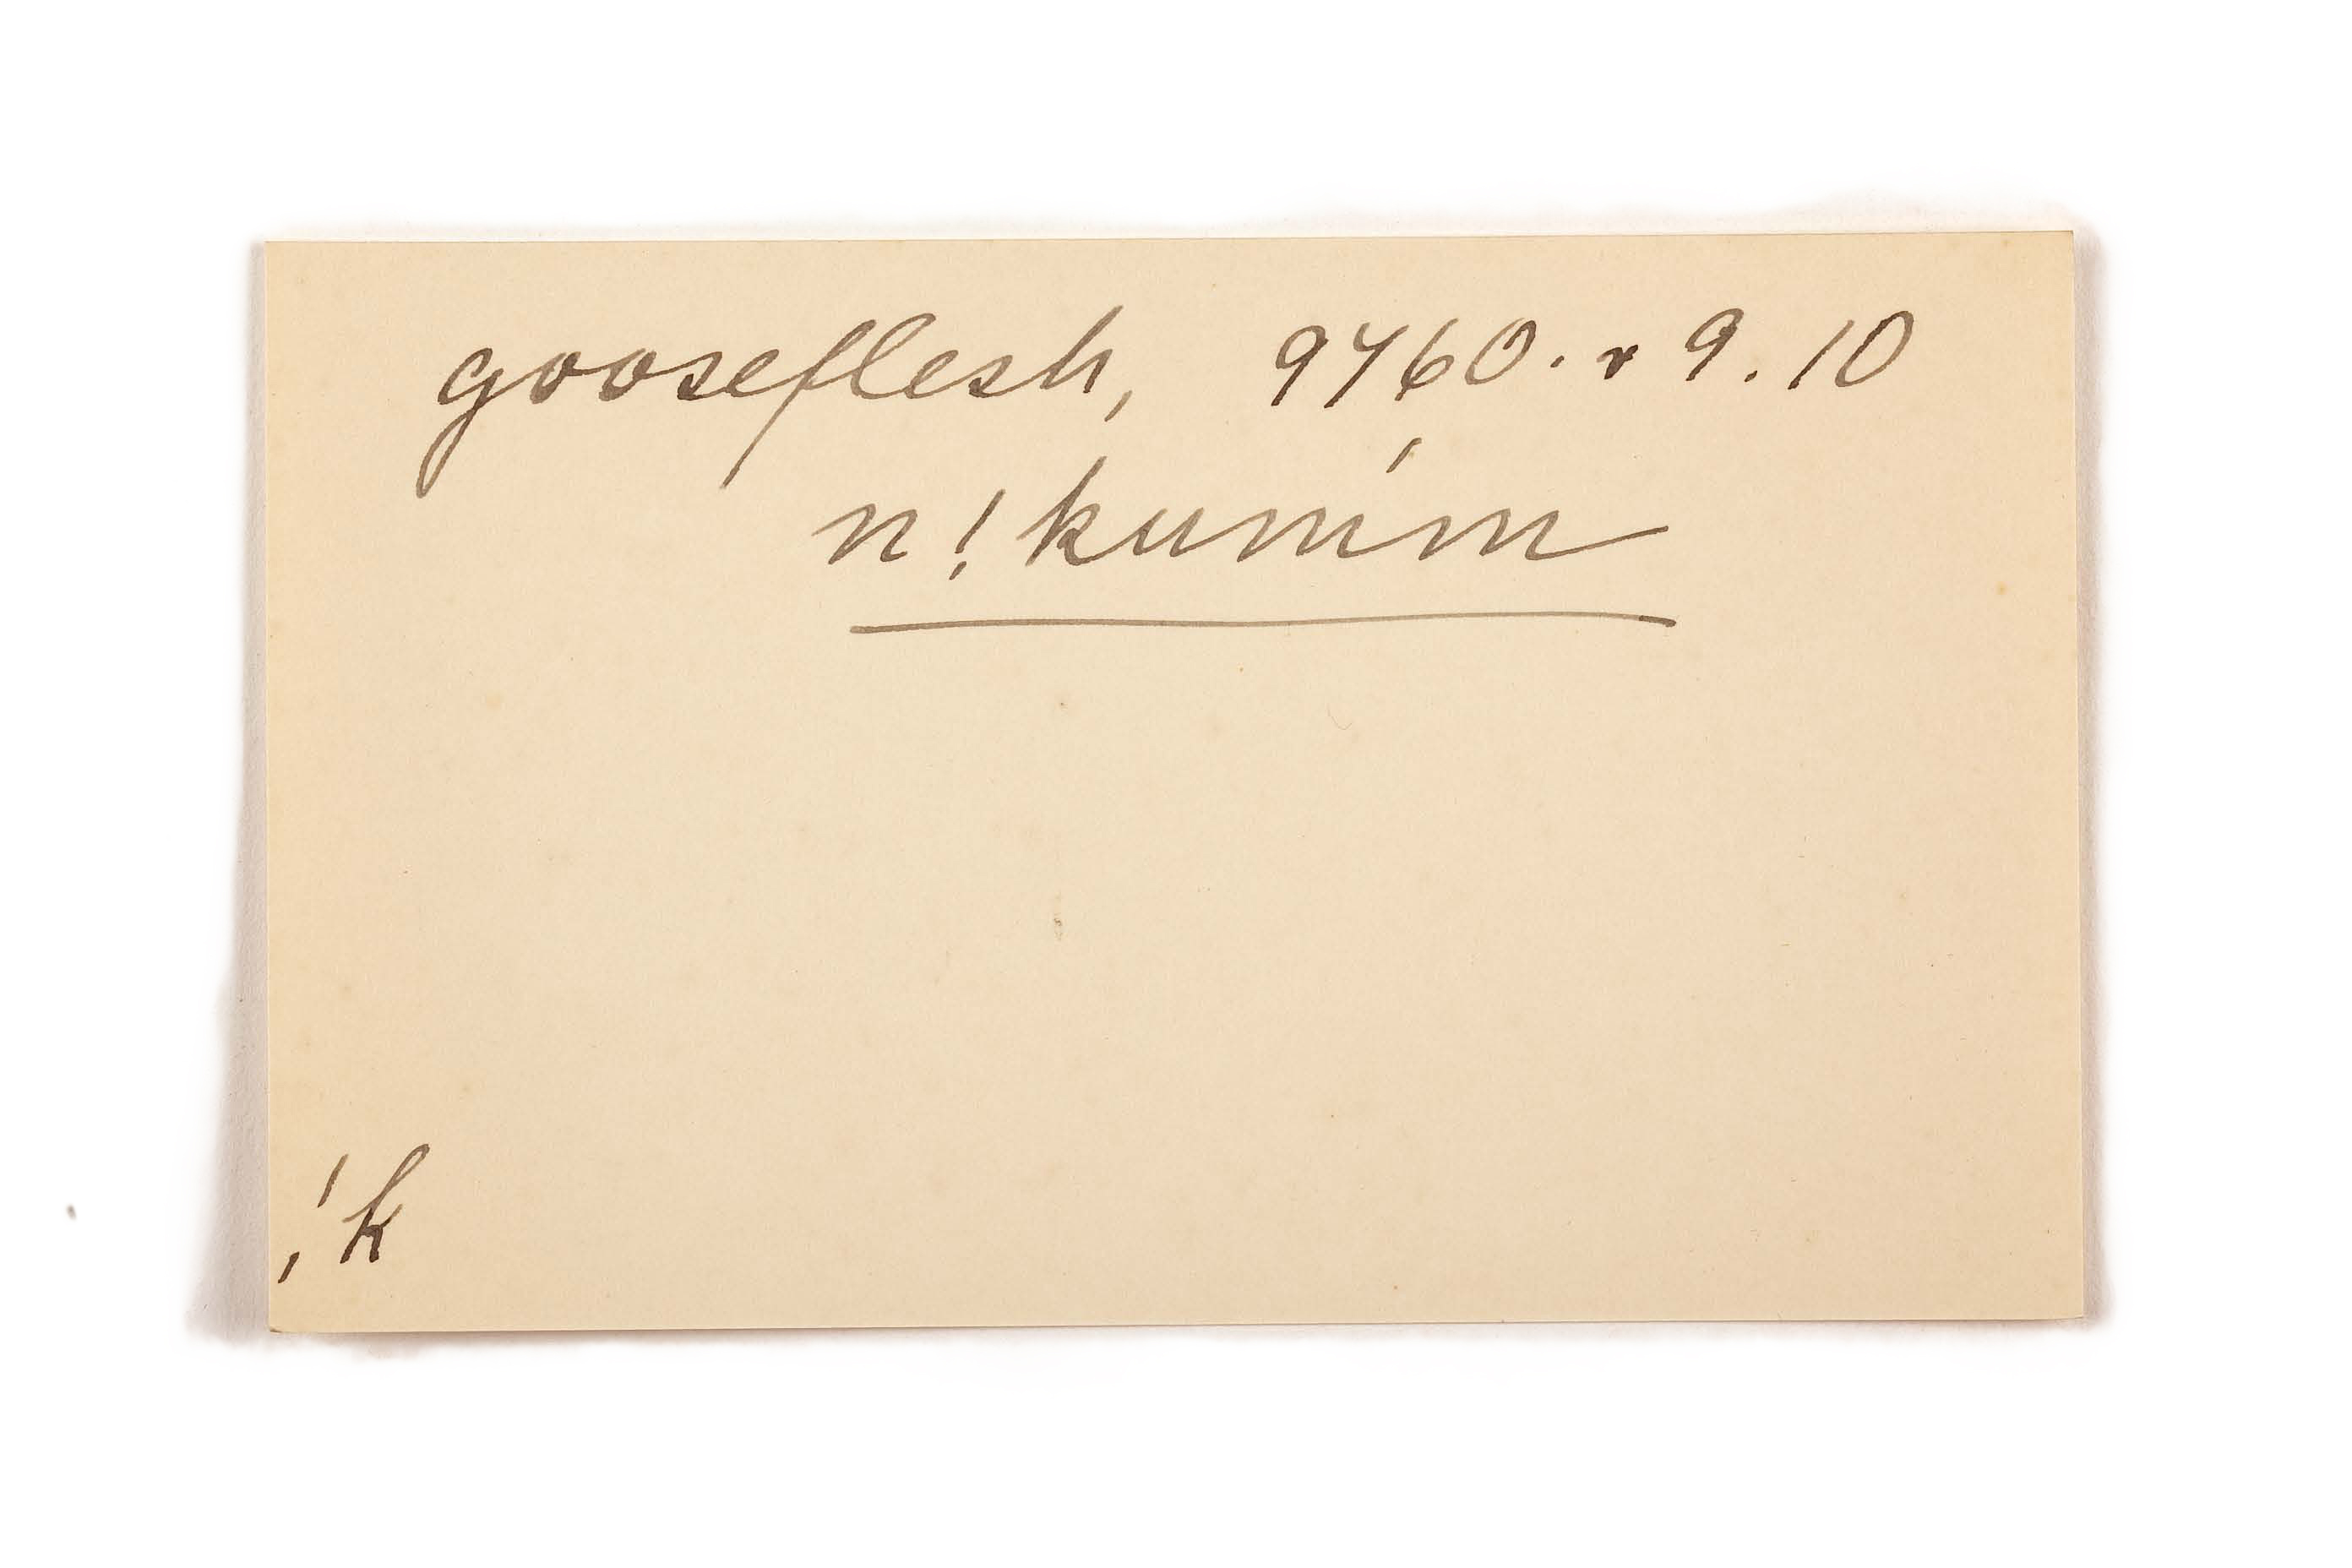 gooseflesh, 9460. r 9. 10
n!kum'm
!k